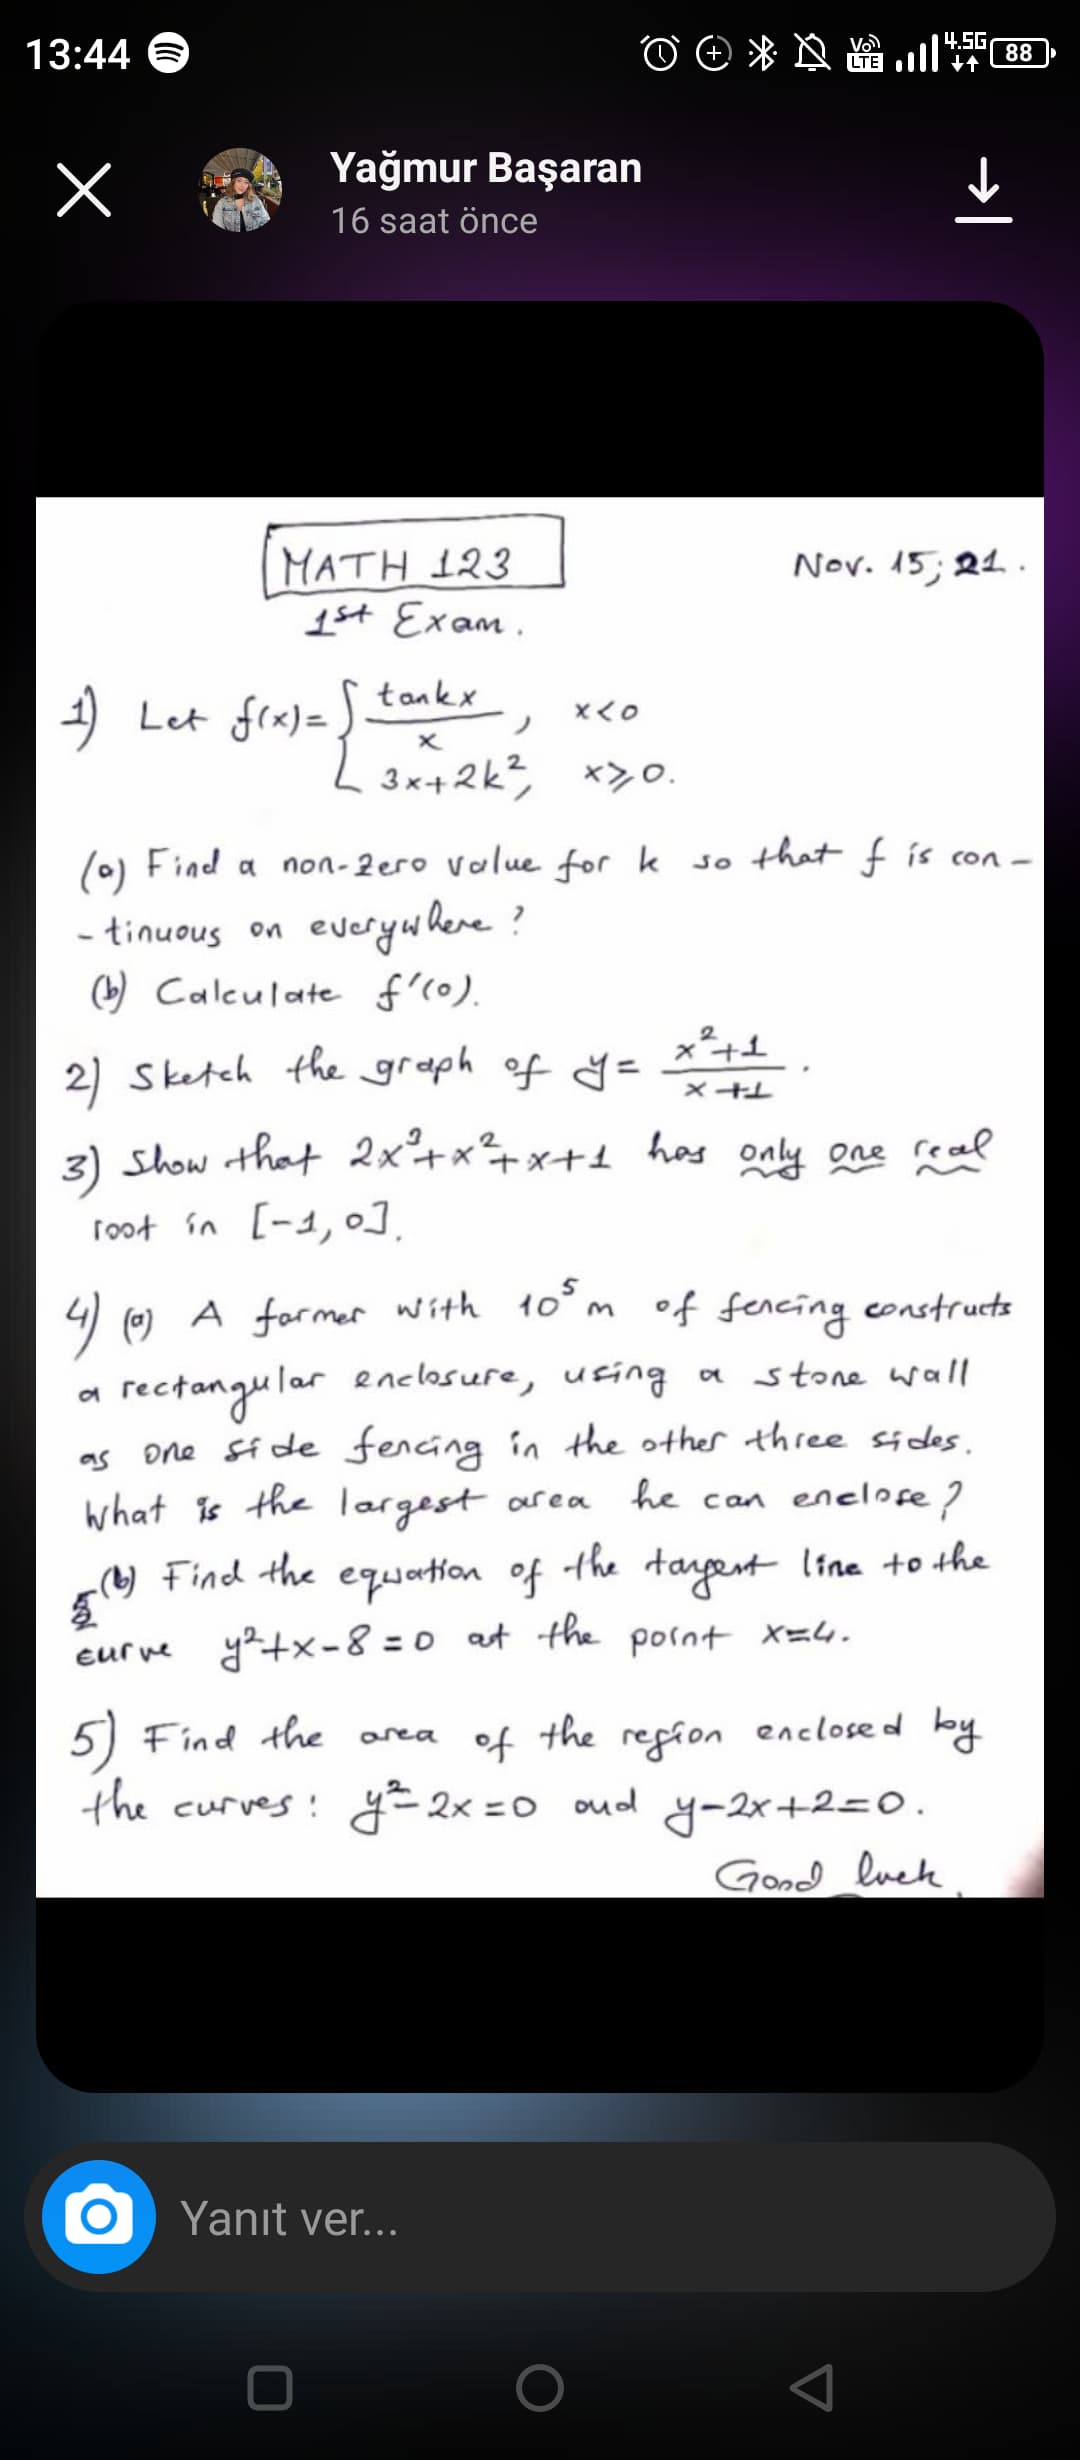 13:44
Vo)) LTE 4.5G 88
Yağmur Başaran
16 saat önce
MATH 123
Nov. 15, 21.
1st Exam.
1) Let f(x) = { tankx / x , x<0
3x+2k², x≥0.
(a) Find a non-zero value for k so that f is con-
-tinuous on everywhere?
(b) Calculate f'(0).
2) Sketch the graph of y = x²+1 / x+1 .
3) Show that 2x³+x²+x+1 has only one real
root in [-1,0].
4) (a) A farmer with 10⁵ m of fencing constructs
a rectangular enclosure, using a stone wall
as one side fencing in the other three sides.
What is the largest area he can enclose?
(b) Find the equation of the tangent line to the
curve y²+x-8=0 at the point x=4.
5) Find the area of the region enclosed by
the curves: y²-2x=0 and y-2x+2=0.
Good luck.
Yanıt ver...